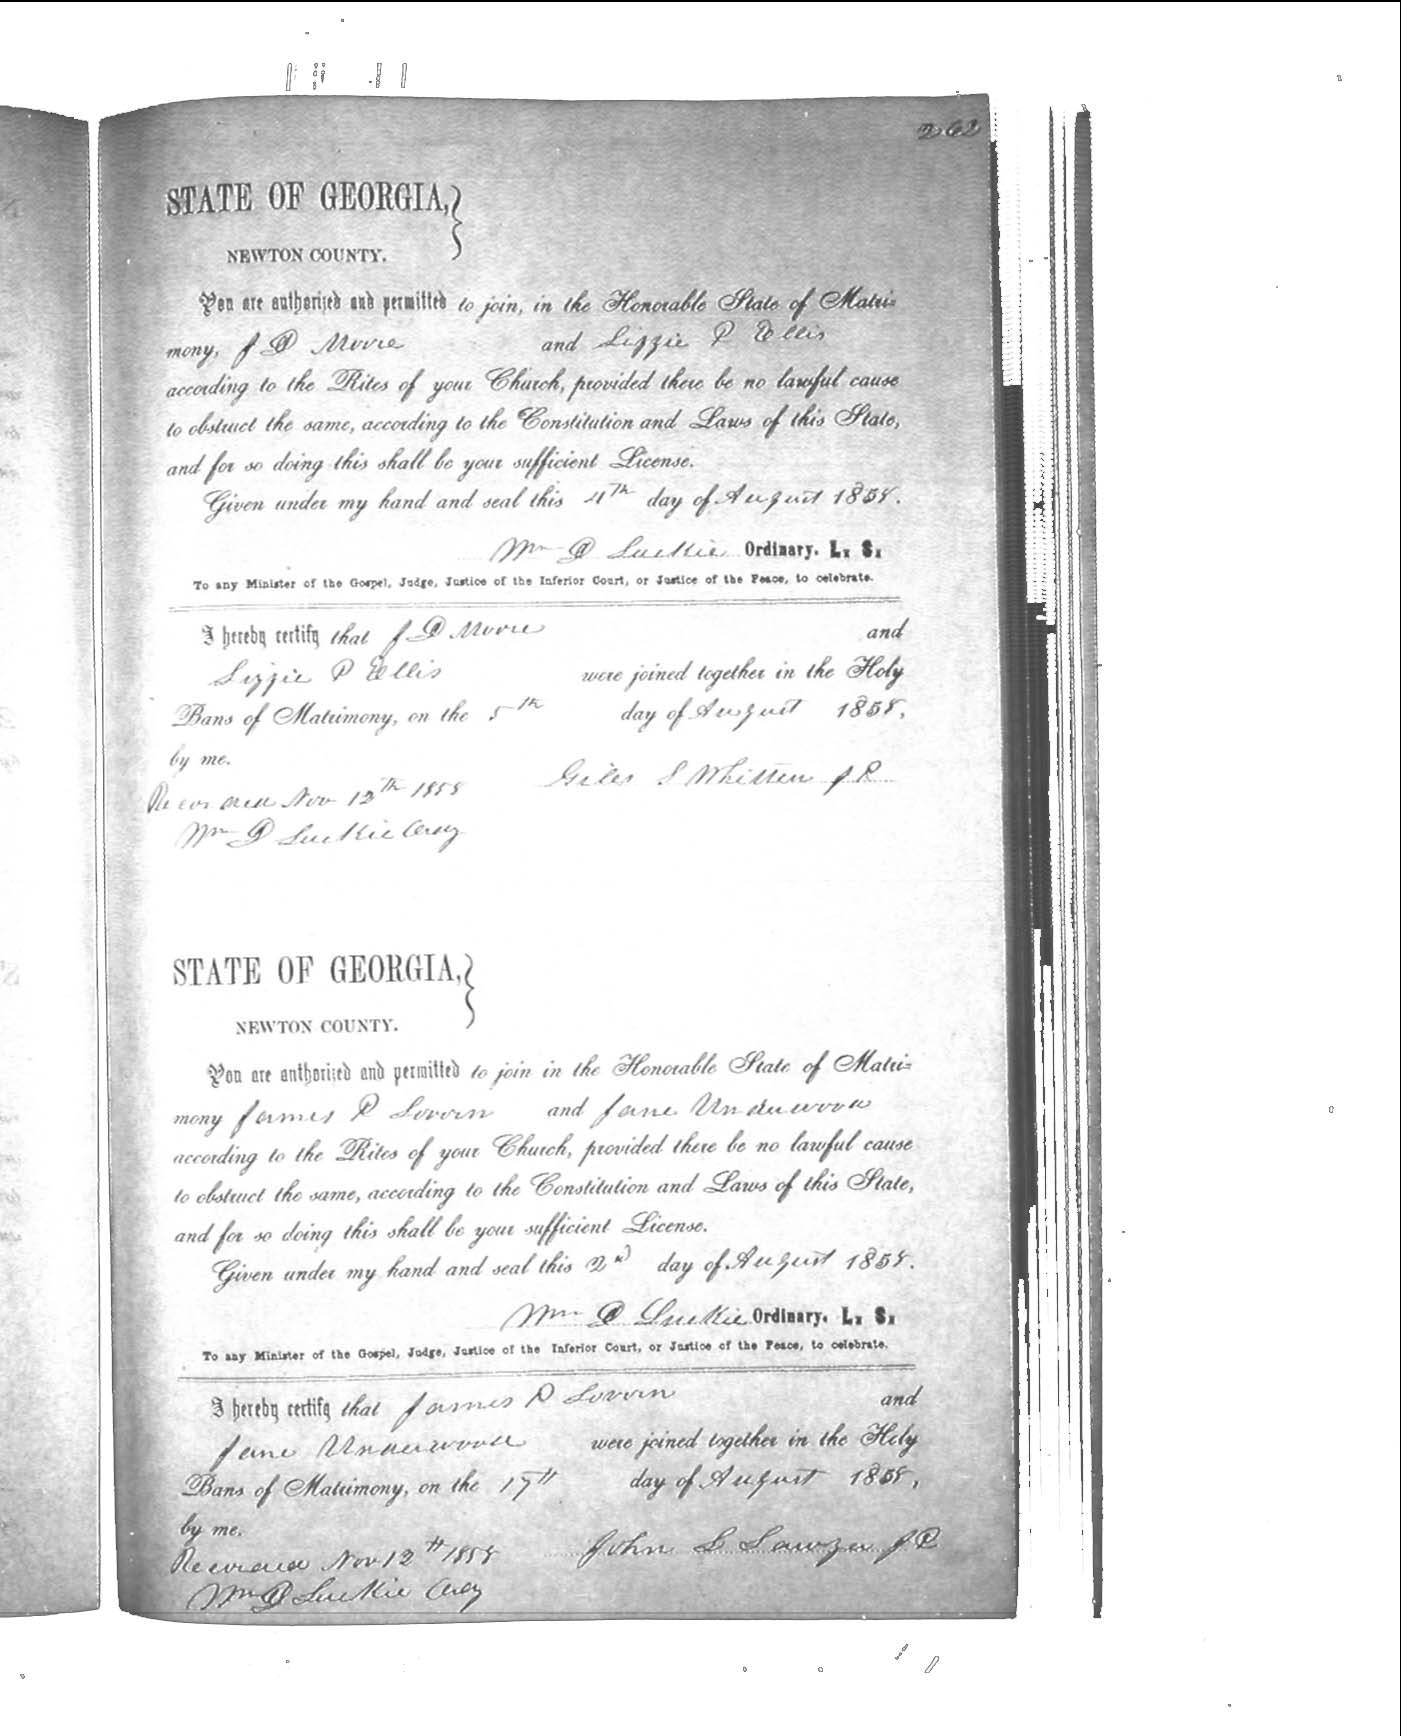 262
STATE OF GEORGIA,
NEWTON COUNTY.
You are authorized and permitted to join, in the Honorable State of Matri=
mony, J D Moore and Lizzie P Ellis
according to the Rites of your Church, provided there be no lawful cause
to obstruct the same, according to the Constitution and Laws of this State,
and for so doing this shall be your sufficient License.
Given under my hand and seal this 4th day of August 1858.
Wm D Luckie Ordinary. L. S.
To any Minister of the Gospel, Judge, Justice of the Inferior Court, or Justice of the Peace, to celebrate.
I hereby certify that J D Moore and
Lizzie P Ellis were joined together in the Holy
Bans of Matrimony, on the 5th day of August 1858,
by me.
Giles S Whitten J P
Recorded Nov 12th 1858
Wm D Luckie Ordy
STATE OF GEORGIA,
NEWTON COUNTY.
You are authorized and permitted to join in the Honorable State of Matri=
mony James R Lovvin and Jane Underwood
according to the Rites of your Church, provided there be no lawful cause
to obstruct the same, according to the Constitution and Laws of this State,
and for so doing this shall be your sufficient License.
Given under my hand and seal this 2nd day of August 1858.
Wm D Luckie Ordinary. L. S.
To any Minister of the Gospel, Judge, Justice of the Inferior Court, or Justice of the Peace, to celebrate.
I hereby certify that James R Lovvin and
Jane Underwood were joined together in the Holy
Bans of Matrimony, on the 17th day of August 1858,
by me.
John L J P
Recorded Nov 12th 1858
Wm D Luckie Ordy